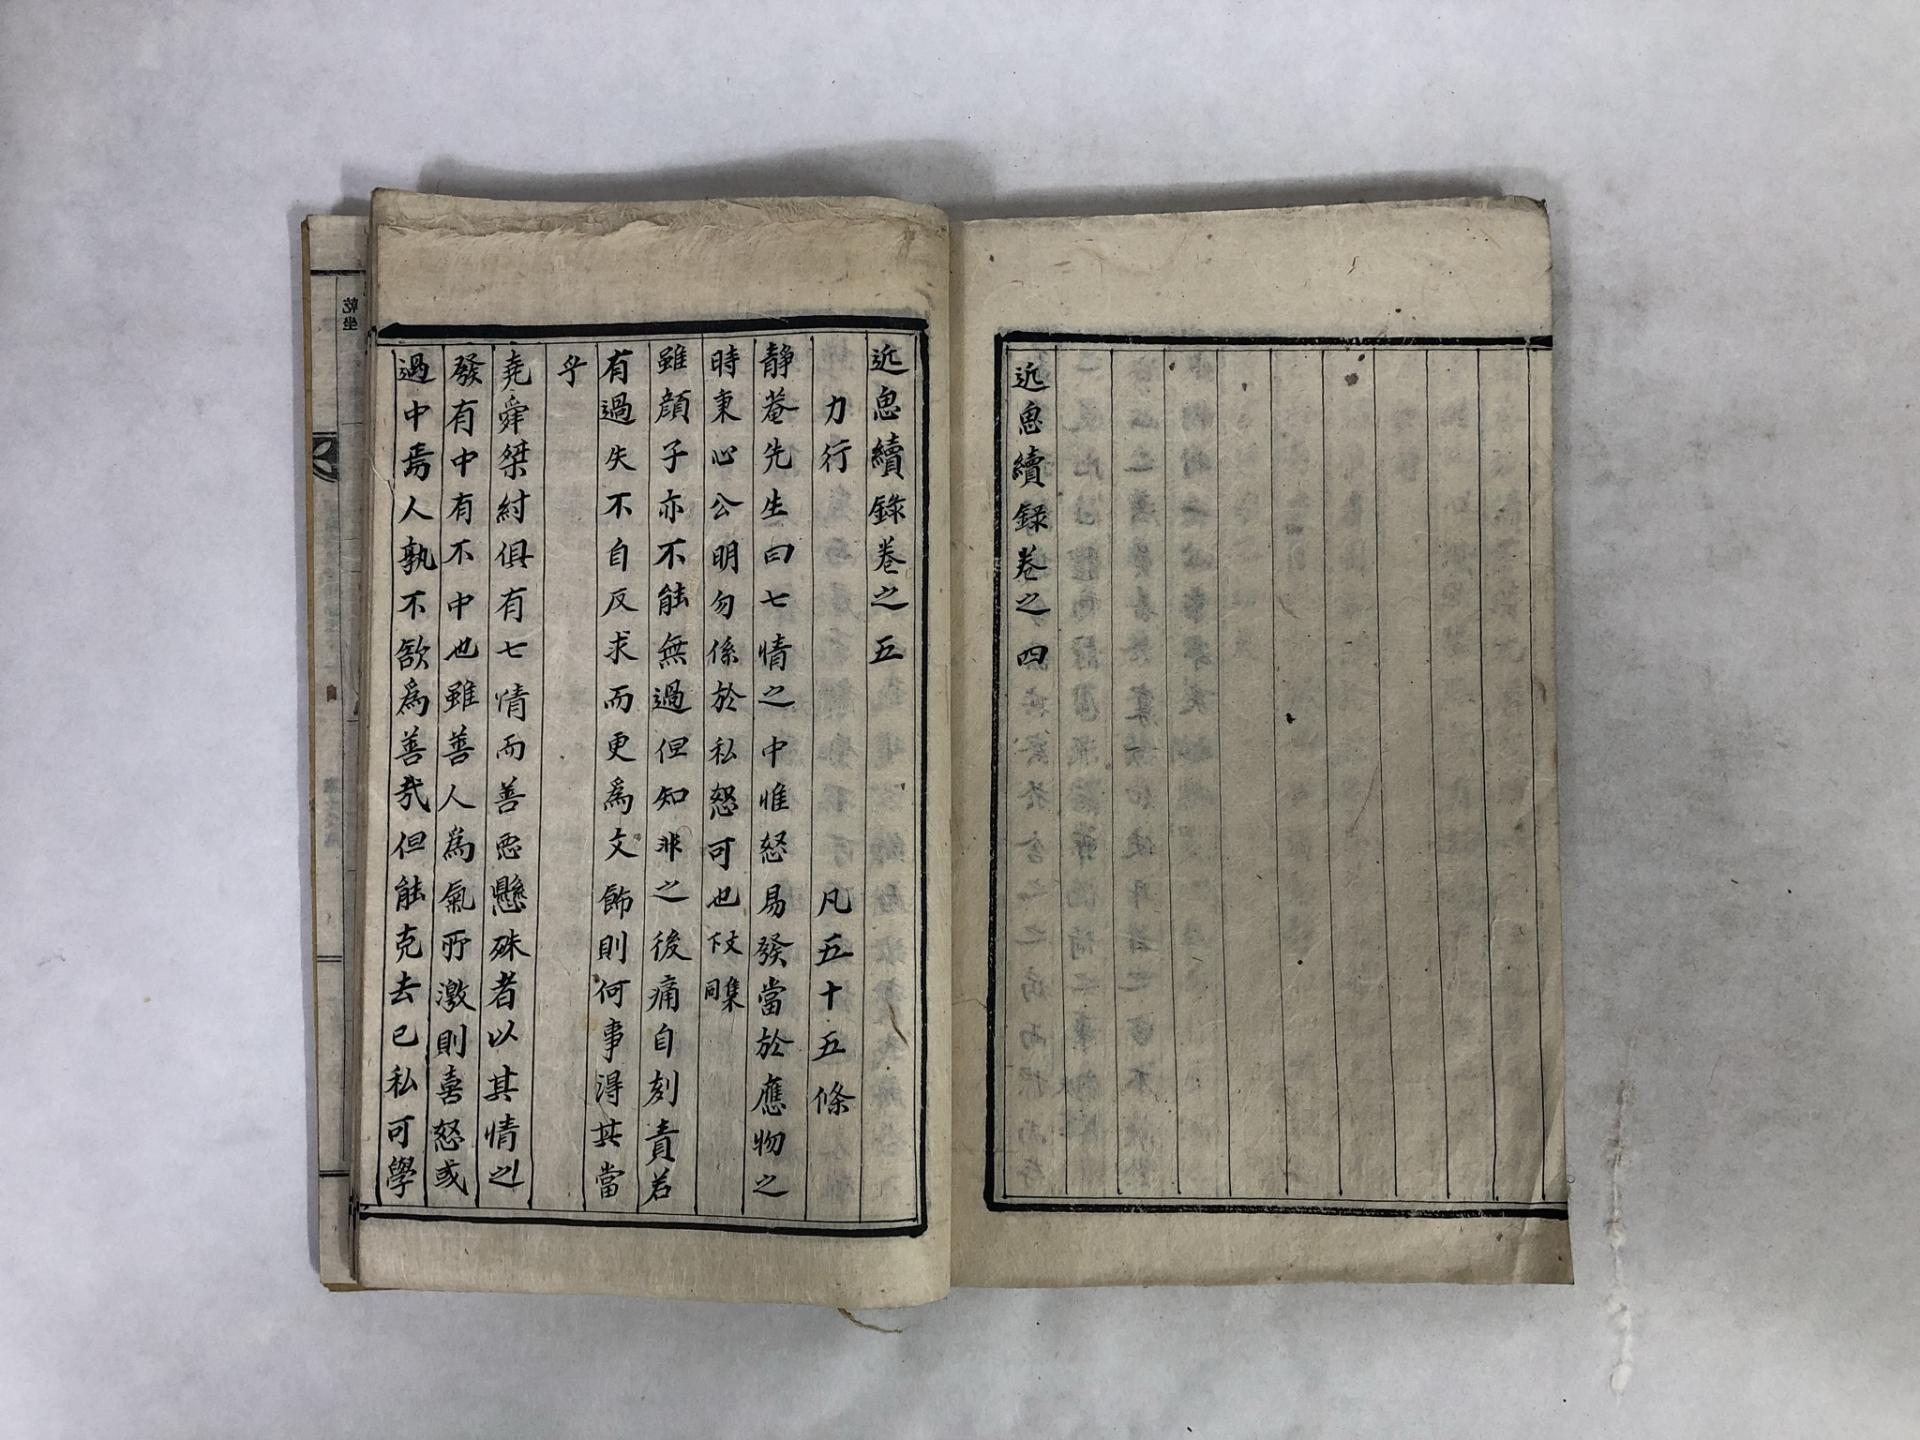 近思續錄卷之四
近思續錄卷之五
力行 凡五十五條
静菴先生曰七情之中惟怒易發當於應物之
時秉心公明勿係於私怒可也 下文同集
雖顔子亦不能無過但知非之後痛自刻責若
有過失不自反求而更爲文飾則何事得其當
乎
尭舜桀紂俱有七情而善惡懸殊者以其情之
發有中有不中也雖善人爲氣所激則喜怒或
過中焉人孰不欲爲善㦲但能克去己私可學